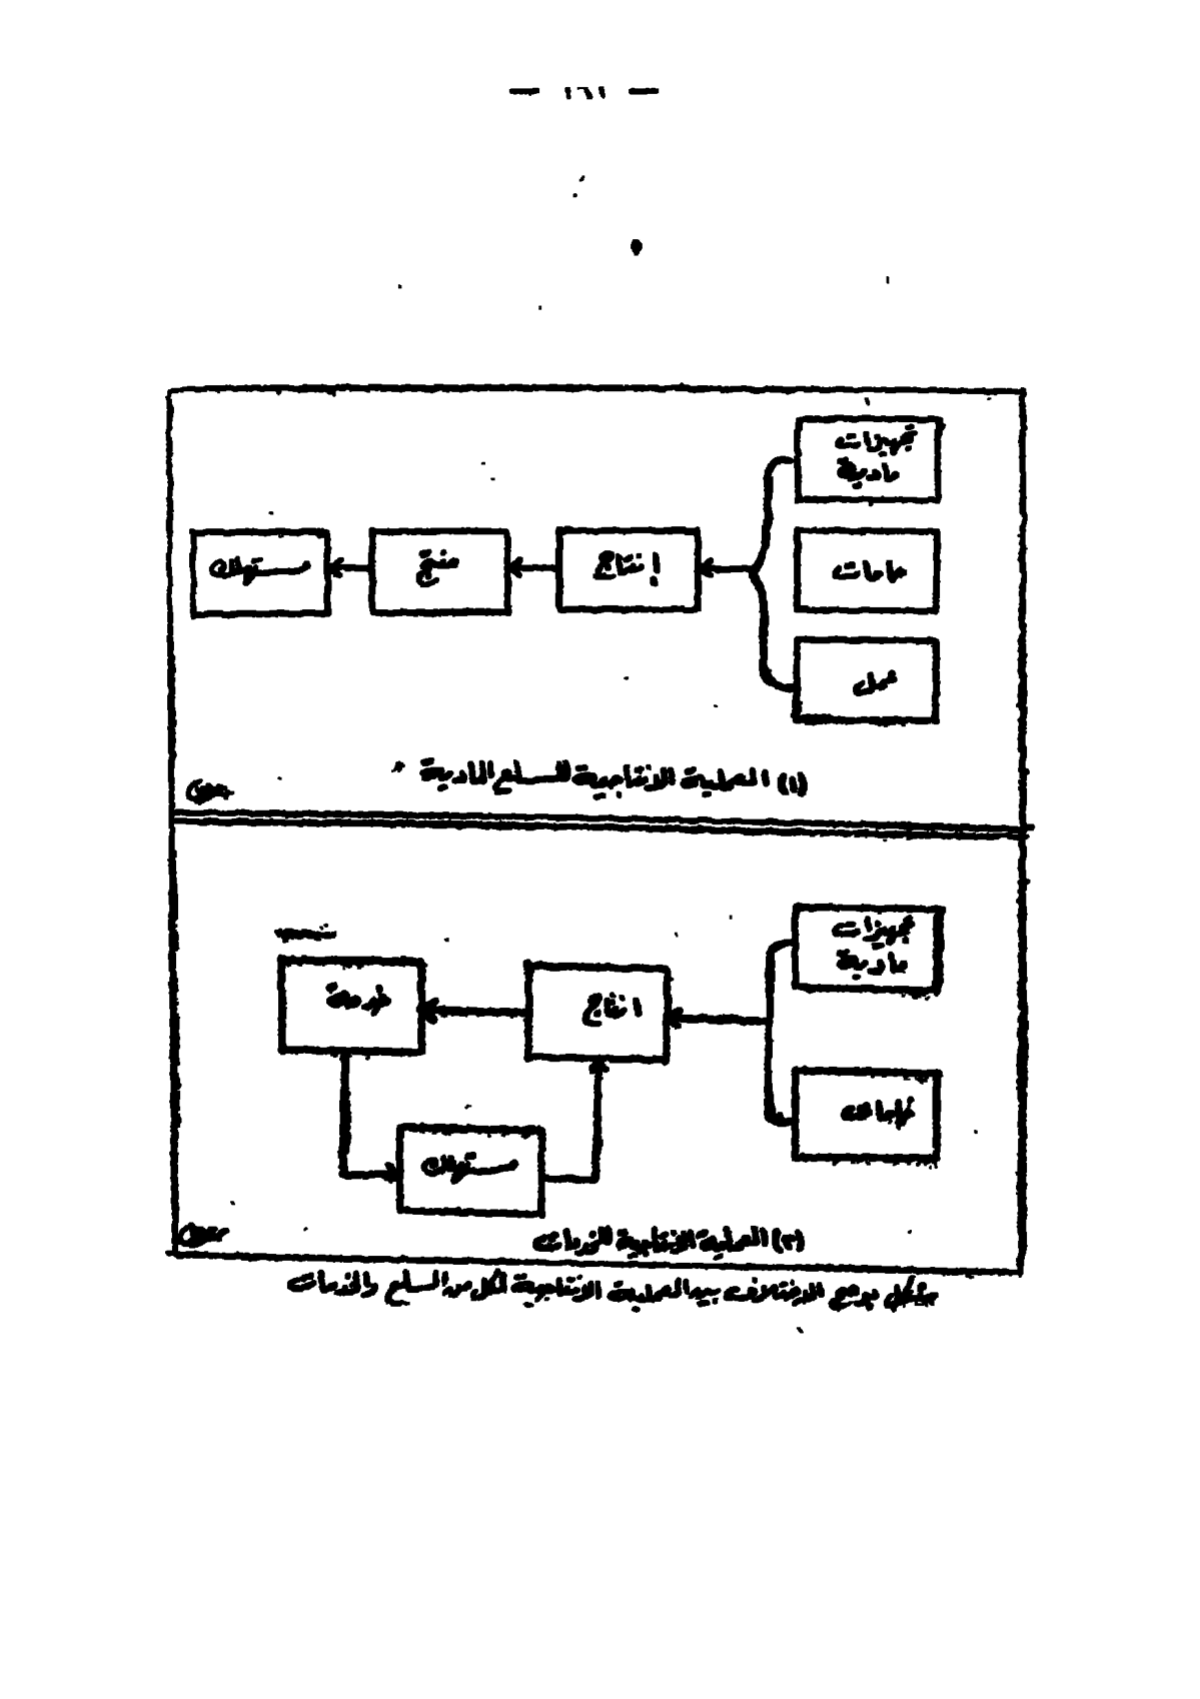 — ١٦١ —
تجهيزات
مادية
خامات
عمل
إنتاج
منتج
مستهلك
(١) العملية الانتاجية للسلع المادية
تجهيزات
مادية
خامات
انتاج
خدمة
مستهلك
(٢) العملية الانتاجية للخدمات
شكل يوضح الاختلاف بين العملية الانتاجية لكل من السلع والخدمات